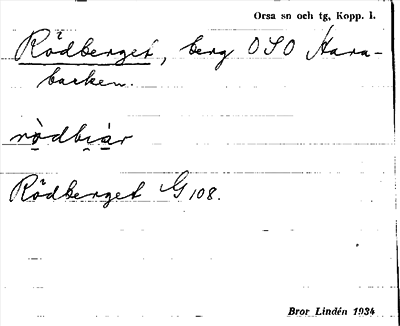 Orsa sn och tg, Kopp. l.
Rödberget, berg OSO Hara-
backen.
rödbiàr
Rödberget G 108.
Bror Lindén 1934